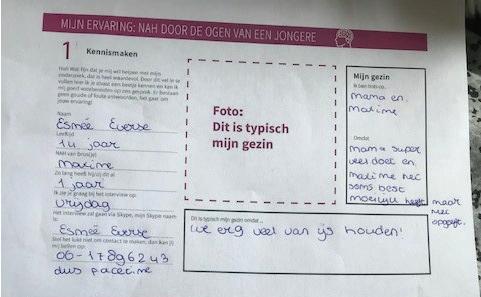 MIJN ERVARING: NAH DOOR DE OGEN VAN EEN JONGERE
1 Kennismaken
Hoi! Wat fijn dat je mij wil helpen met mijn
onderzoek, dat is heel waardevol. Door dit vel in te
vullen leer ik je alvast een beetje kennen en kan ik
mij goed voorbereiden op ons gesprek. Er bestaan
geen goede of foute antwoorden, het gaat om
jouw ervaring!
Naam
Esmée Everse
Leeftijd
14 jaar
NAH van broer/je)
Maxime
Zo lang heeft hij/zij dit al
1 jaar
Ik zie je graag bij het interview op:
Vrijdag
Het interview zal gaan via Skype, mijn Skype naam
is:
Esmée Everse
Stel het lukt niet om contact te maken, dan kan jij
mij bellen op:
06-17896243
dus facetime
Foto:
Dit is typisch
mijn gezin
Mijn gezin
Ik ben trots op...
mama en
maxime
Omdat
mama super
veel doet en
maxime het
soms best
moeilijk heeft maar
niet
opgeeft.
Dit is typisch mijn gezin omdat ...
we erg veel van ijs houden!